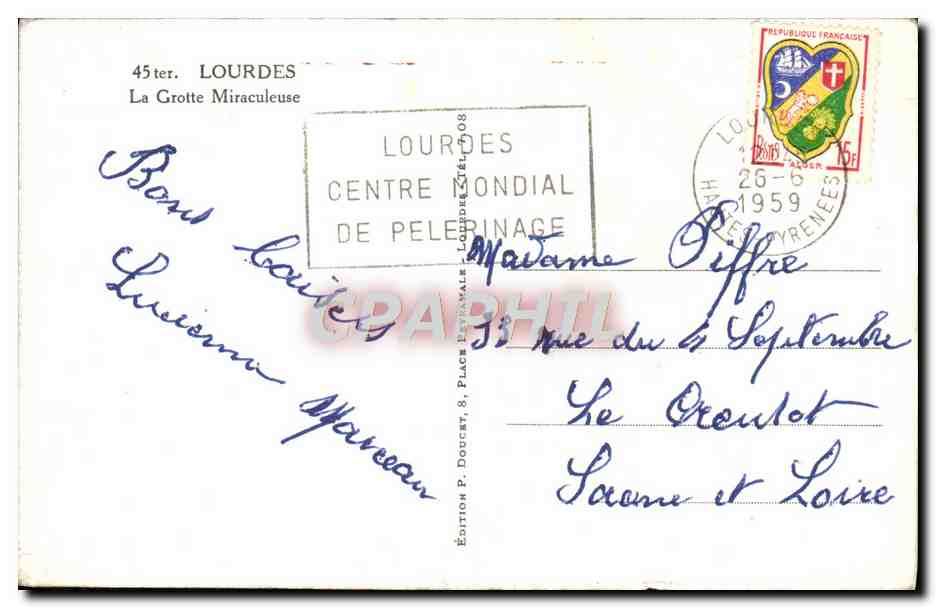 45 ter. LOURDES
La Grotte Miraculeuse
LOURDES
CENTRE MONDIAL
DE PELERINAGE
REPUBLIQUE FRANÇAISE
POSTES 15F
ALGER
26-6
1959
HAUTES PYRENEES
Bons baisers
Lucienne Marceau
ÉDITION P. DOUCET, 8, PLACE PEYRAMALE - LOURDES - TÉL.
Madame Piffre
33 rue du 4 Septembre
Le Creusot
Saone et Loire
CPAPHIL